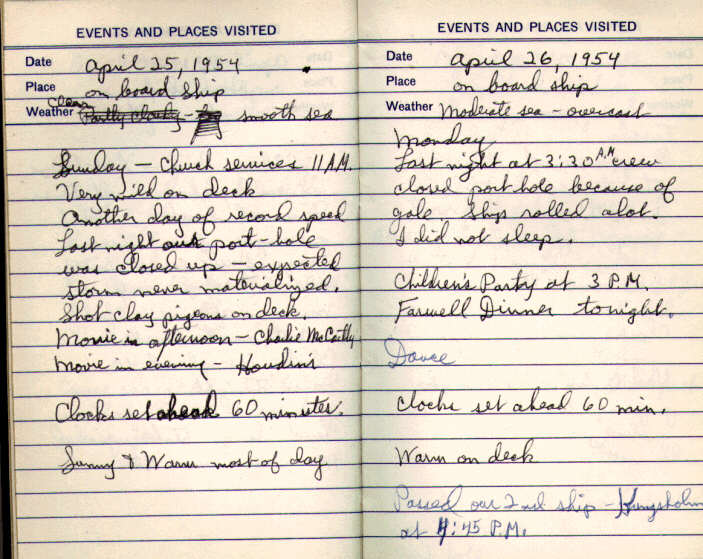 EVENTS AND PLACES VISITED
Date April 25, 1954
Place on board ship
Weather Clear Partly cloudy - smooth sea
Sunday - Church services 11 A.M.
Very mild on deck
Another day of record speed
Last night our port-hole
was closed up - expected
storm never materialized.
Shot clay pigeons on deck.
Movie in afternoon - Charlie McCarthy
Movie in evening - Houdini
Clocks set ahead 60 minutes.
Sunny & Warm most of day
EVENTS AND PLACES VISITED
Date April 26, 1954
Place on board ship
Weather Moderate sea - overcast
Monday
Last night at 3:30 A.M crew
closed port hole because of
gale. Ship rolled alot.
I did not sleep.
Children's Party at 3 P.M.
Farwell Dinner tonight.
Dance
Clocks set ahead 60 min.
Warm on deck
Passed our 2nd ship - Kungsholm
at 4:45 P.M.